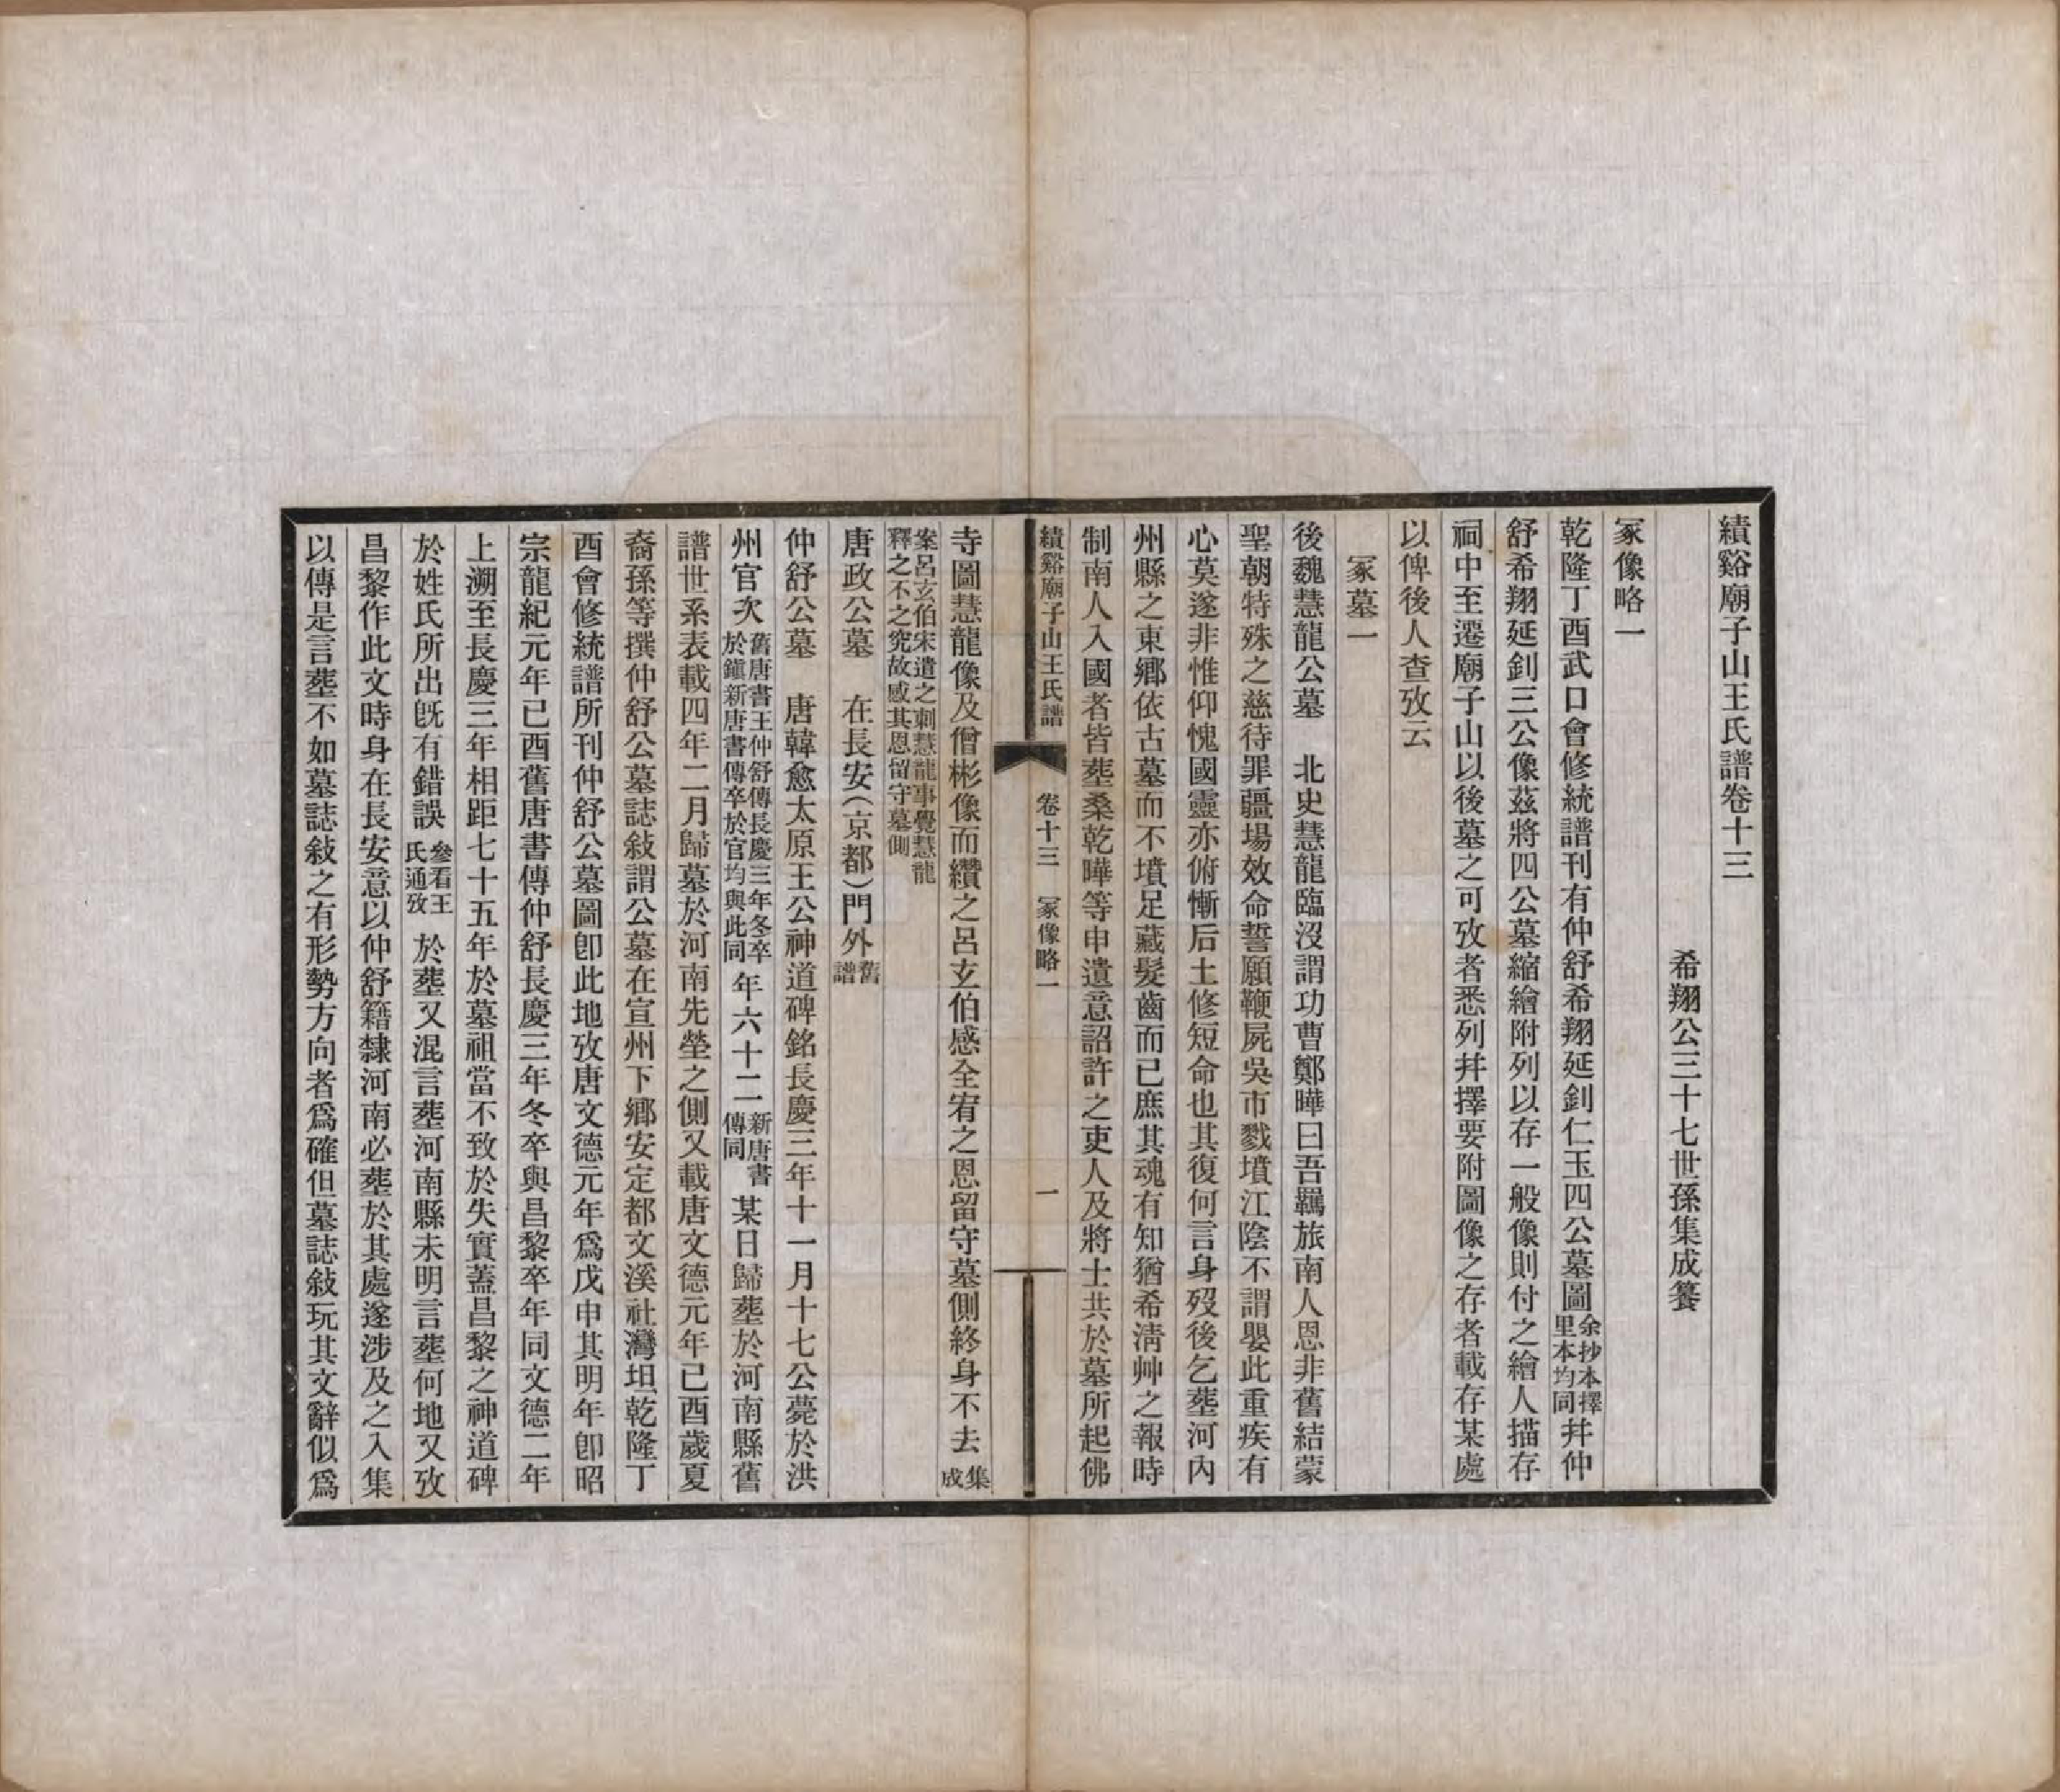 績谿廟子山王氏譜卷十三
希翔公三十七世孫集成纂
冢像略一
乾隆丁酉武口會修統譜刊有仲舒希翔延釗仁玉四公墓圖余抄本擇里本均同幷仲
舒希翔延釗三公像茲將四公墓縮繪附列以存一般像則付之繪人描存
祠中至遷廟子山以後墓之可攷者悉列幷擇要附圖像之存者載存某處
以俾後人查攷云
冢墓一
後魏慧龍公墓　北史慧龍臨沒謂功曹鄭曄曰吾羈旅南人恩非舊結蒙
聖朝特殊之慈待罪疆場效命誓願鞭屍吳市戮墳江陰不謂嬰此重疾有
心莫遂非惟仰愧國靈亦俯慚后土修短命也其復何言身歿後乞葬河內
州縣之東鄉依古墓而不墳足藏髮齒而已庶其魂有知猶希淸艸之報時
制南人入國者皆葬桑乾曄等申遺意詔許之吏人及將士共於墓所起佛
績谿廟子山王氏譜　卷十三　冢像略一　一
寺圖慧龍像及僧彬像而纘之呂玄伯感全宥之恩留守墓側終身不去集成
案呂玄伯宋遣之刺慧龍事覺慧龍釋之不之究故感其恩留守墓側
唐政公墓　在長安（京都）門外舊譜
仲舒公墓　唐韓愈太原王公神道碑銘長慶三年十一月十七公薨於洪
州官次舊唐書王仲舒傳長慶三年冬卒於鎭新唐書傳卒於官均與此同年六十二新唐書傳同某日歸葬於河南縣舊
譜世系表載四年二月歸墓於河南先塋之側又載唐文德元年己酉歲夏
裔孫等撰仲舒公墓誌敍謂公墓在宣州下鄉安定都文溪社灣坦乾隆丁
酉會修統譜所刊仲舒公墓圖卽此地攷唐文德元年爲戊申其明年卽昭
宗龍紀元年已酉舊唐書傳仲舒長慶三年冬卒與昌黎卒年同文德二年
上溯至長慶三年相距七十五年於墓祖當不致於失實蓋昌黎之神道碑
於姓氏所出旣有錯誤參看王氏通攷於葬又混言葬河南縣未明言葬何地又攷
昌黎作此文時身在長安意以仲舒籍隸河南必葬於其處遂涉及之入集
以傳是言葬不如墓誌敍之有形勢方向者爲確但墓誌敍玩其文辭似爲